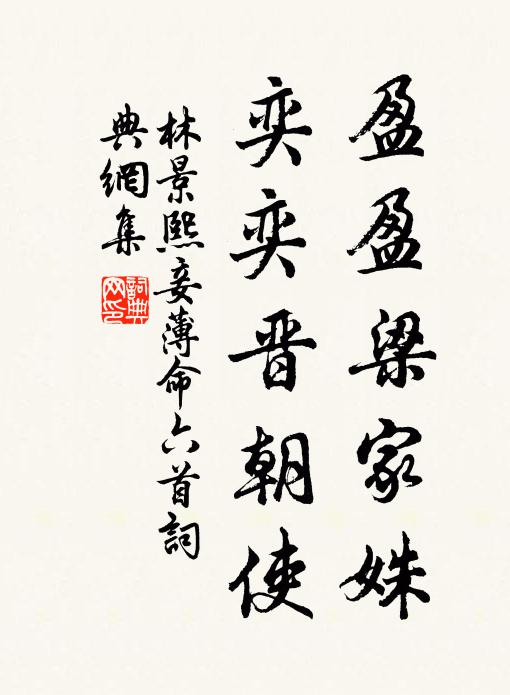 盈盈梁家姝
奕奕晋朝使
林景熙妾薄命六首詞
典網集
詞典網印